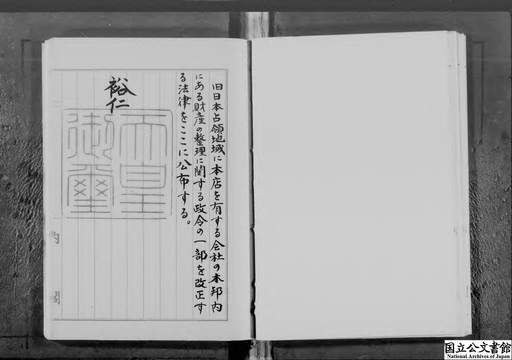 旧日本占領地域に本店を有する会社の本邦内
にある財産の整理に関する政令の一部を改正す
る法律をここに公布する。
裕仁
天皇
御璽
国立公文書館
National Archives of Japan